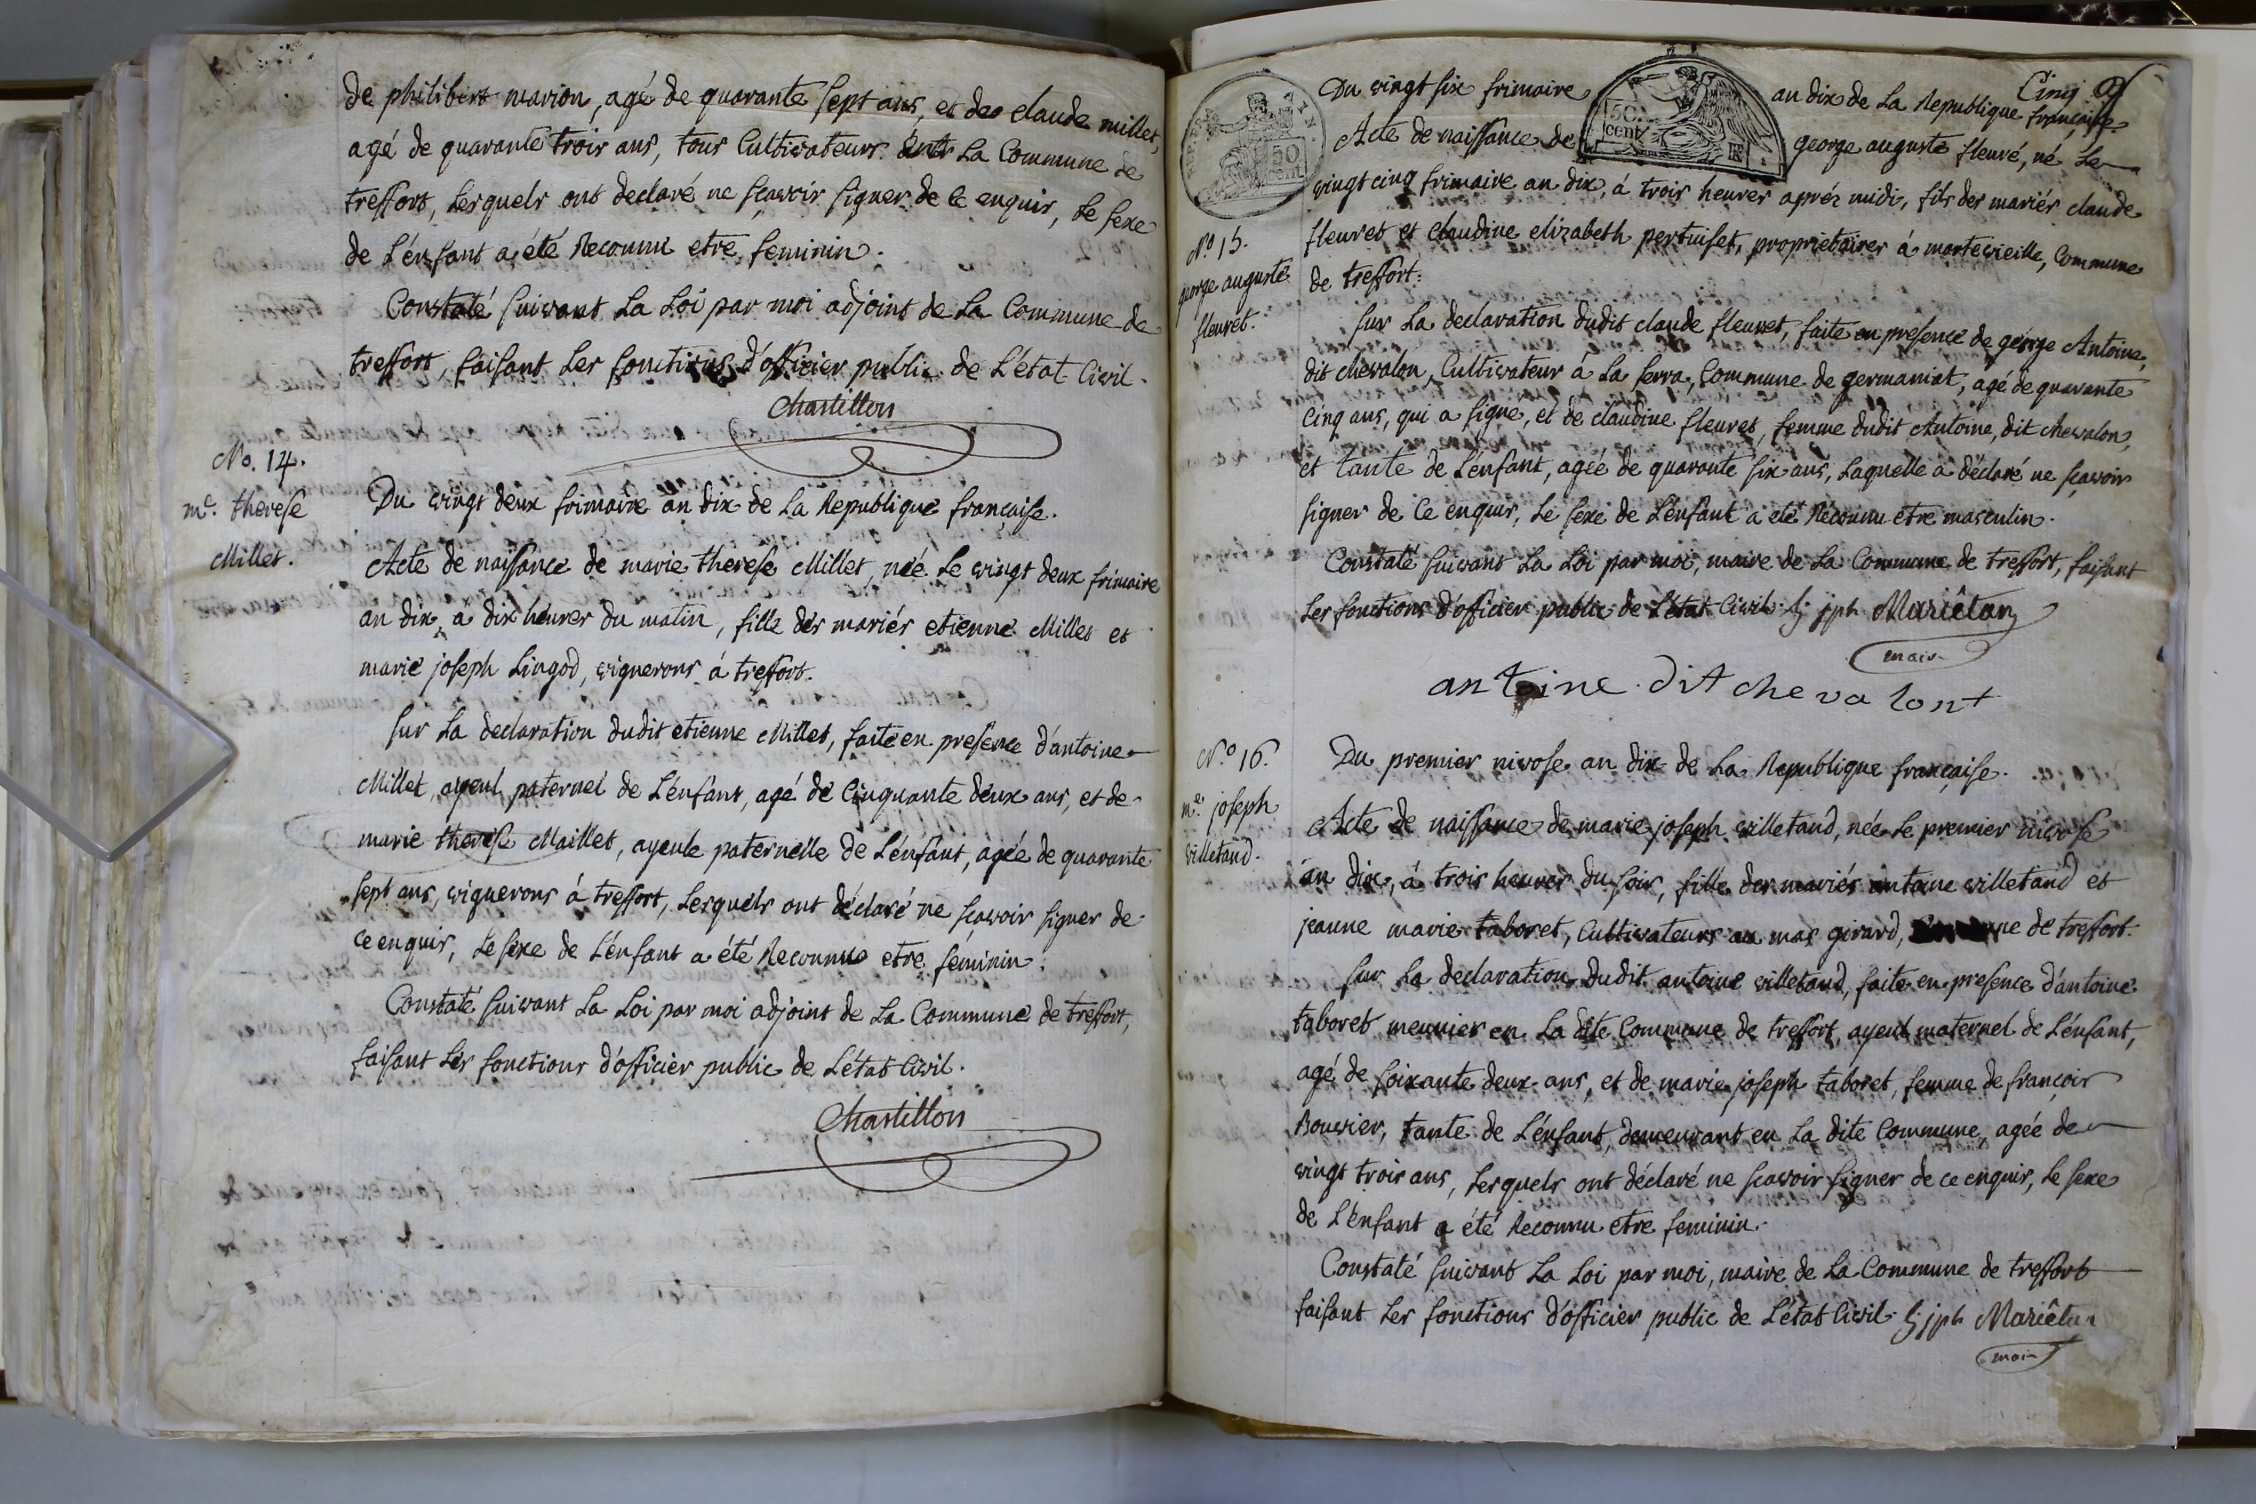 de philibert marion, agé de quarante sept ans, et de claude millet,
agé de quarante trois ans, tous Cultivateurs La Commune de
treffort, Lesquels ont declaré ne sçavoir signer de ce enquis, Le sexe
de L'énfant a été Reconnu etre feminin.
Constaté suivant La Loi par moi adjoint de La Commune de
treffort, faisant Les fonctions d'officier public de L'état Civil.
Chastillon
No. 14.
me. therese
Millet.
Du vingt deux frimaire an dix de La Republique française.
Acte de naissance de marie therese Millet, née Le vingt deux frimaire
an dix, a dix heures du matin, fille des mariés etienne Millet et
marie joseph Lingod, vignerons á treffort.
sur La declaration dudit etienne Millet, faite en presence d'antoine
Millet, ayeul paternel de L'énfant, agé de Cinquante deux ans, et de
marie therese Maillet, ayeule paternelle de L'énfant, agée de quarante
sept ans, vignerons á treffort, Lesquels ont déclaré ne sçavoir signer de
ce enquis, Le sexe de L'énfant a été Reconnu etre féminin.
Constaté suivant La Loi par moi adjoint de La Commune de treffort,
faisant Les fonctions d'officier public de L'état Civil.
Chastillon
Cinq
50 cent.
50 cent.
Du vingt six frimaire an dix de La Republique française
Acte de naissance de george auguste fleuré, né Le
vingt cinq frimaire an dix, á trois heures aprés midi, fils des mariés claude
No 15.
george auguste
fleuret.
fleuret et claudine elizabeth pertuiset, propriétaires á montevieille, Commune
de treffort.
sur La declaration dudit claude fleuret, faite en presence de george Antoine,
dit chevalon, Cultivateur á La serra, Commune de germaniat, agé de quarante
Cinq ans, qui a signé, et de claudine fleuret, femme dudit Antoine, dit chevalon,
et tante de L'énfant, agée de quarante six ans, Laquelle a déclaré ne sçavoir
signer de Ce enquis, Le sexe de L'énfant a eté Reconnu etre masculin.
Constaté suivant La Loi par moi, maire de La Commune de treffort, faisant
Les fonctions d'officier public de L'état Civil jph Mariêtan
maire
antoine dit chevalont
No 16.
me. joseph
villetand.
Du premier nivose an dix de La Republique française.
Acte de naissance de marie joseph villetand, née Le premier nivose
an dix, á trois heures du soir, fille des mariés antoine villetand et
jeanne marie taboret, Cultivateurs au mas girard, Commune de treffort.
sur La declaration dudit antoine villetand, faite en presence d'antoine
taboret meunier en La dite Commune de treffort, ayeul maternel de L'énfant,
agé de soixante deux ans, et de marie joseph taboret, femme de françois
Bouvier, tante de L'énfant, demeurant en La dite Commune, agée de
vingt trois ans, Lesquels ont déclaré ne sçavoir signer de ce enquis, Le sexe
de L'énfant a été Reconnu etre feminin.
Constaté suivant La Loi par moi, maire de La Commune de treffort
faisant Les fonctions d'officier public de L'état Civil jph Mariêtan
maire